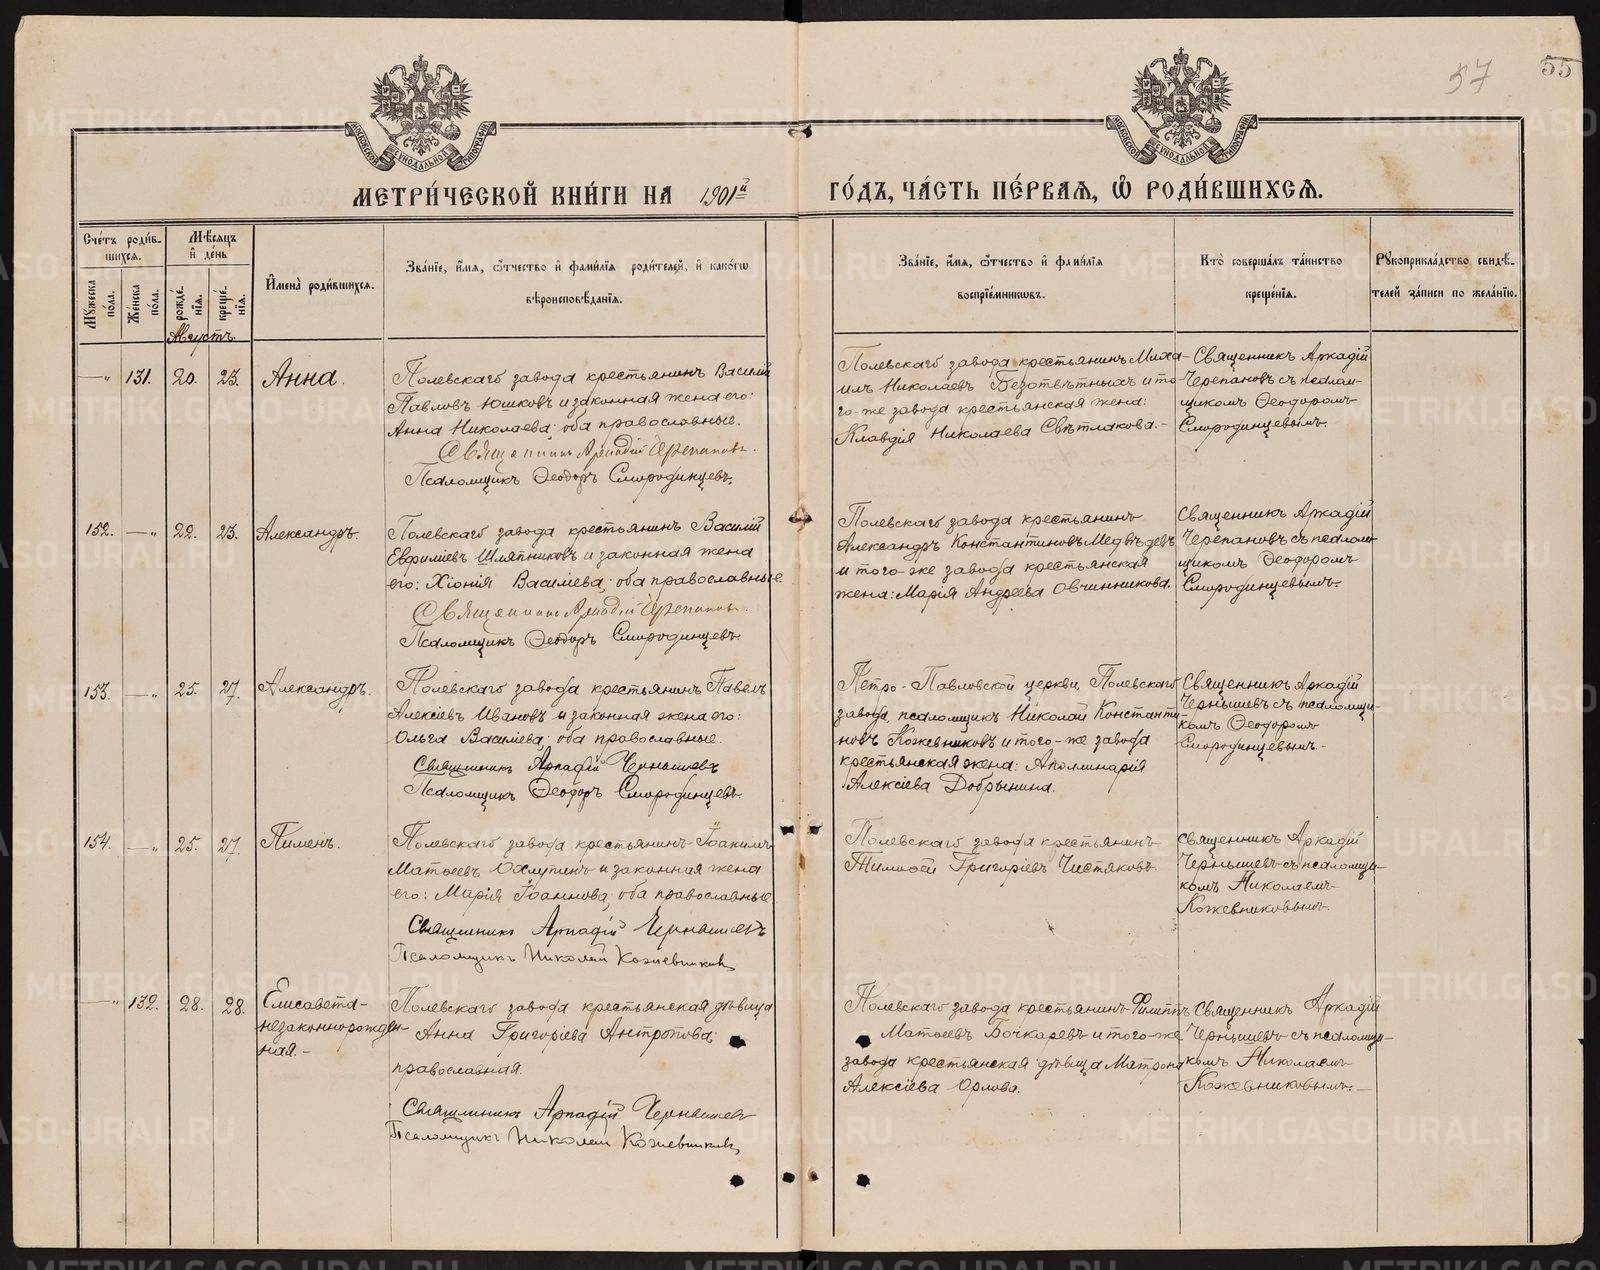 57
55
МОСКОВСКОЙ СУНОДАЛЬНОЙ ТИПОГРАФІИ
МОСКОВСКОЙ СУНОДАЛЬНОЙ ТИПОГРАФІИ
МЕТРИ́ЧЕСКОЙ КНИ́ГИ НА 1901й ГО́ДЪ, ЧА́СТЬ ПЕ́РВАѦ, Ѡ҆ РОДИ́ВШИХСѦ.
Сче́тъ роди́в-
шихсѧ.
Мꙋ́жеска по́ла.
Же́нска по́ла.
Мѣ́сѧцъ
и҆ де́нь
рожде́-
нїѧ.
креще́-
нїѧ.
И҆мена̀ роди́вшихсѧ.
Зва́нїе, и҆́мѧ, ѻ҆́тчество и҆ фами́лїѧ роди́телей, и҆ како́гѡ
вѣроисповѣ́данїѧ.
Зва́нїе, и҆́мѧ, ѻ҆́тчество и҆ фами́лїѧ
воспрїе́мникѡвъ.
Кто̀ соверша́лъ та́инство
креще́нїѧ.
Рꙋкоприкла́дство свидѣ́-
телей за́писи по жела́нїю.
Августъ.
—„ 131. 20. 23. Анна.
Полевскаго завода крестьянинъ Василій
Павловъ Юшковъ и законная жена его:
Анна Николаева; оба православные.
Священникъ Аркадій Черепановъ.
Псаломщикъ Ѳеодоръ Смородинцевъ.
Полевскаго завода крестьянинъ Миха-
илъ Николаевъ Безотвѣтныхъ и то-
го-же завода крестьянская жена:
Клавдія Николаева Свѣтлакова.-
Священникъ Аркадій
Черепановъ съ псалом-
щикомъ Ѳеодоромъ
Смородинцевымъ.
152. —„ 22. 23. Александръ.
Полевскаго завода крестьянинъ Василій
Евфиміевъ Шляпниковъ и законная жена
его: Хіонія Василіева; оба православные
Священникъ Аркадій Черепановъ.
Псаломщикъ Ѳеодоръ Смородинцевъ.
Полевскаго завода крестьянинъ
Александръ Константиновъ Медвѣдевъ
и того-же завода крестьянская
жена: Марія Андреева Овчинникова.
Священникъ Аркадій
Черепановъ съ псалом-
щикомъ Ѳеодоромъ
Смородинцевымъ.
153. —„ 25. 27. Александръ.
Полевскаго завода крестьянинъ Павелъ
Алексіевъ Ивановъ и законная жена его:
Ольга Василіева; оба православные.
Священникъ Аркадій Чернышевъ
Псаломщикъ Ѳеодоръ Смородинцевъ
Петро-Павловской церкви, Полевскаго
завода, псаломщикъ Николай Константи-
новъ Кожевниковъ и того-же завода
крестьянская жена: Аполлинарія
Алексіева Добрынина.
Священникъ Аркадій
Чернышевъ съ псаломщи-
комъ Ѳеодоромъ
Смородинцевымъ.-
154. —„ 25. 27. Пименъ.
Полевскаго завода крестьянинъ Іоакимъ
Матѳеевъ Охлупинъ и законная жена
его: Марія Іоаннова; оба православные
Священникъ Аркадій Чернышевъ
Псаломщикъ Николай Кожевниковъ
Полевскаго завода крестьянинъ
Тимоѳей Григоріевъ Чистяковъ
Священникъ Аркадій
Чернышевъ съ псаломщи-
комъ Николаемъ
Кожевниковымъ.
—„ 132. 28. 28. Елисавета-
незаконнорожден-
ная.-
Полевскаго завода крестьянская дѣвица
Анна Григоріева Антропова;
православная.
Священникъ Аркадій Чернышевъ
Псаломщикъ Николай Кожевниковъ
Полевскаго завода крестьянинъ Филиппъ
Матѳеевъ Бочкаревъ и того-же
завода крестьянская дѣвица Матрона
Алексіева Орлова.
Священникъ Аркадій
Чернышевъ съ псаломщи-
комъ Николаемъ
Кожевниковымъ.-
METRIKI.GASO-URAL.RU